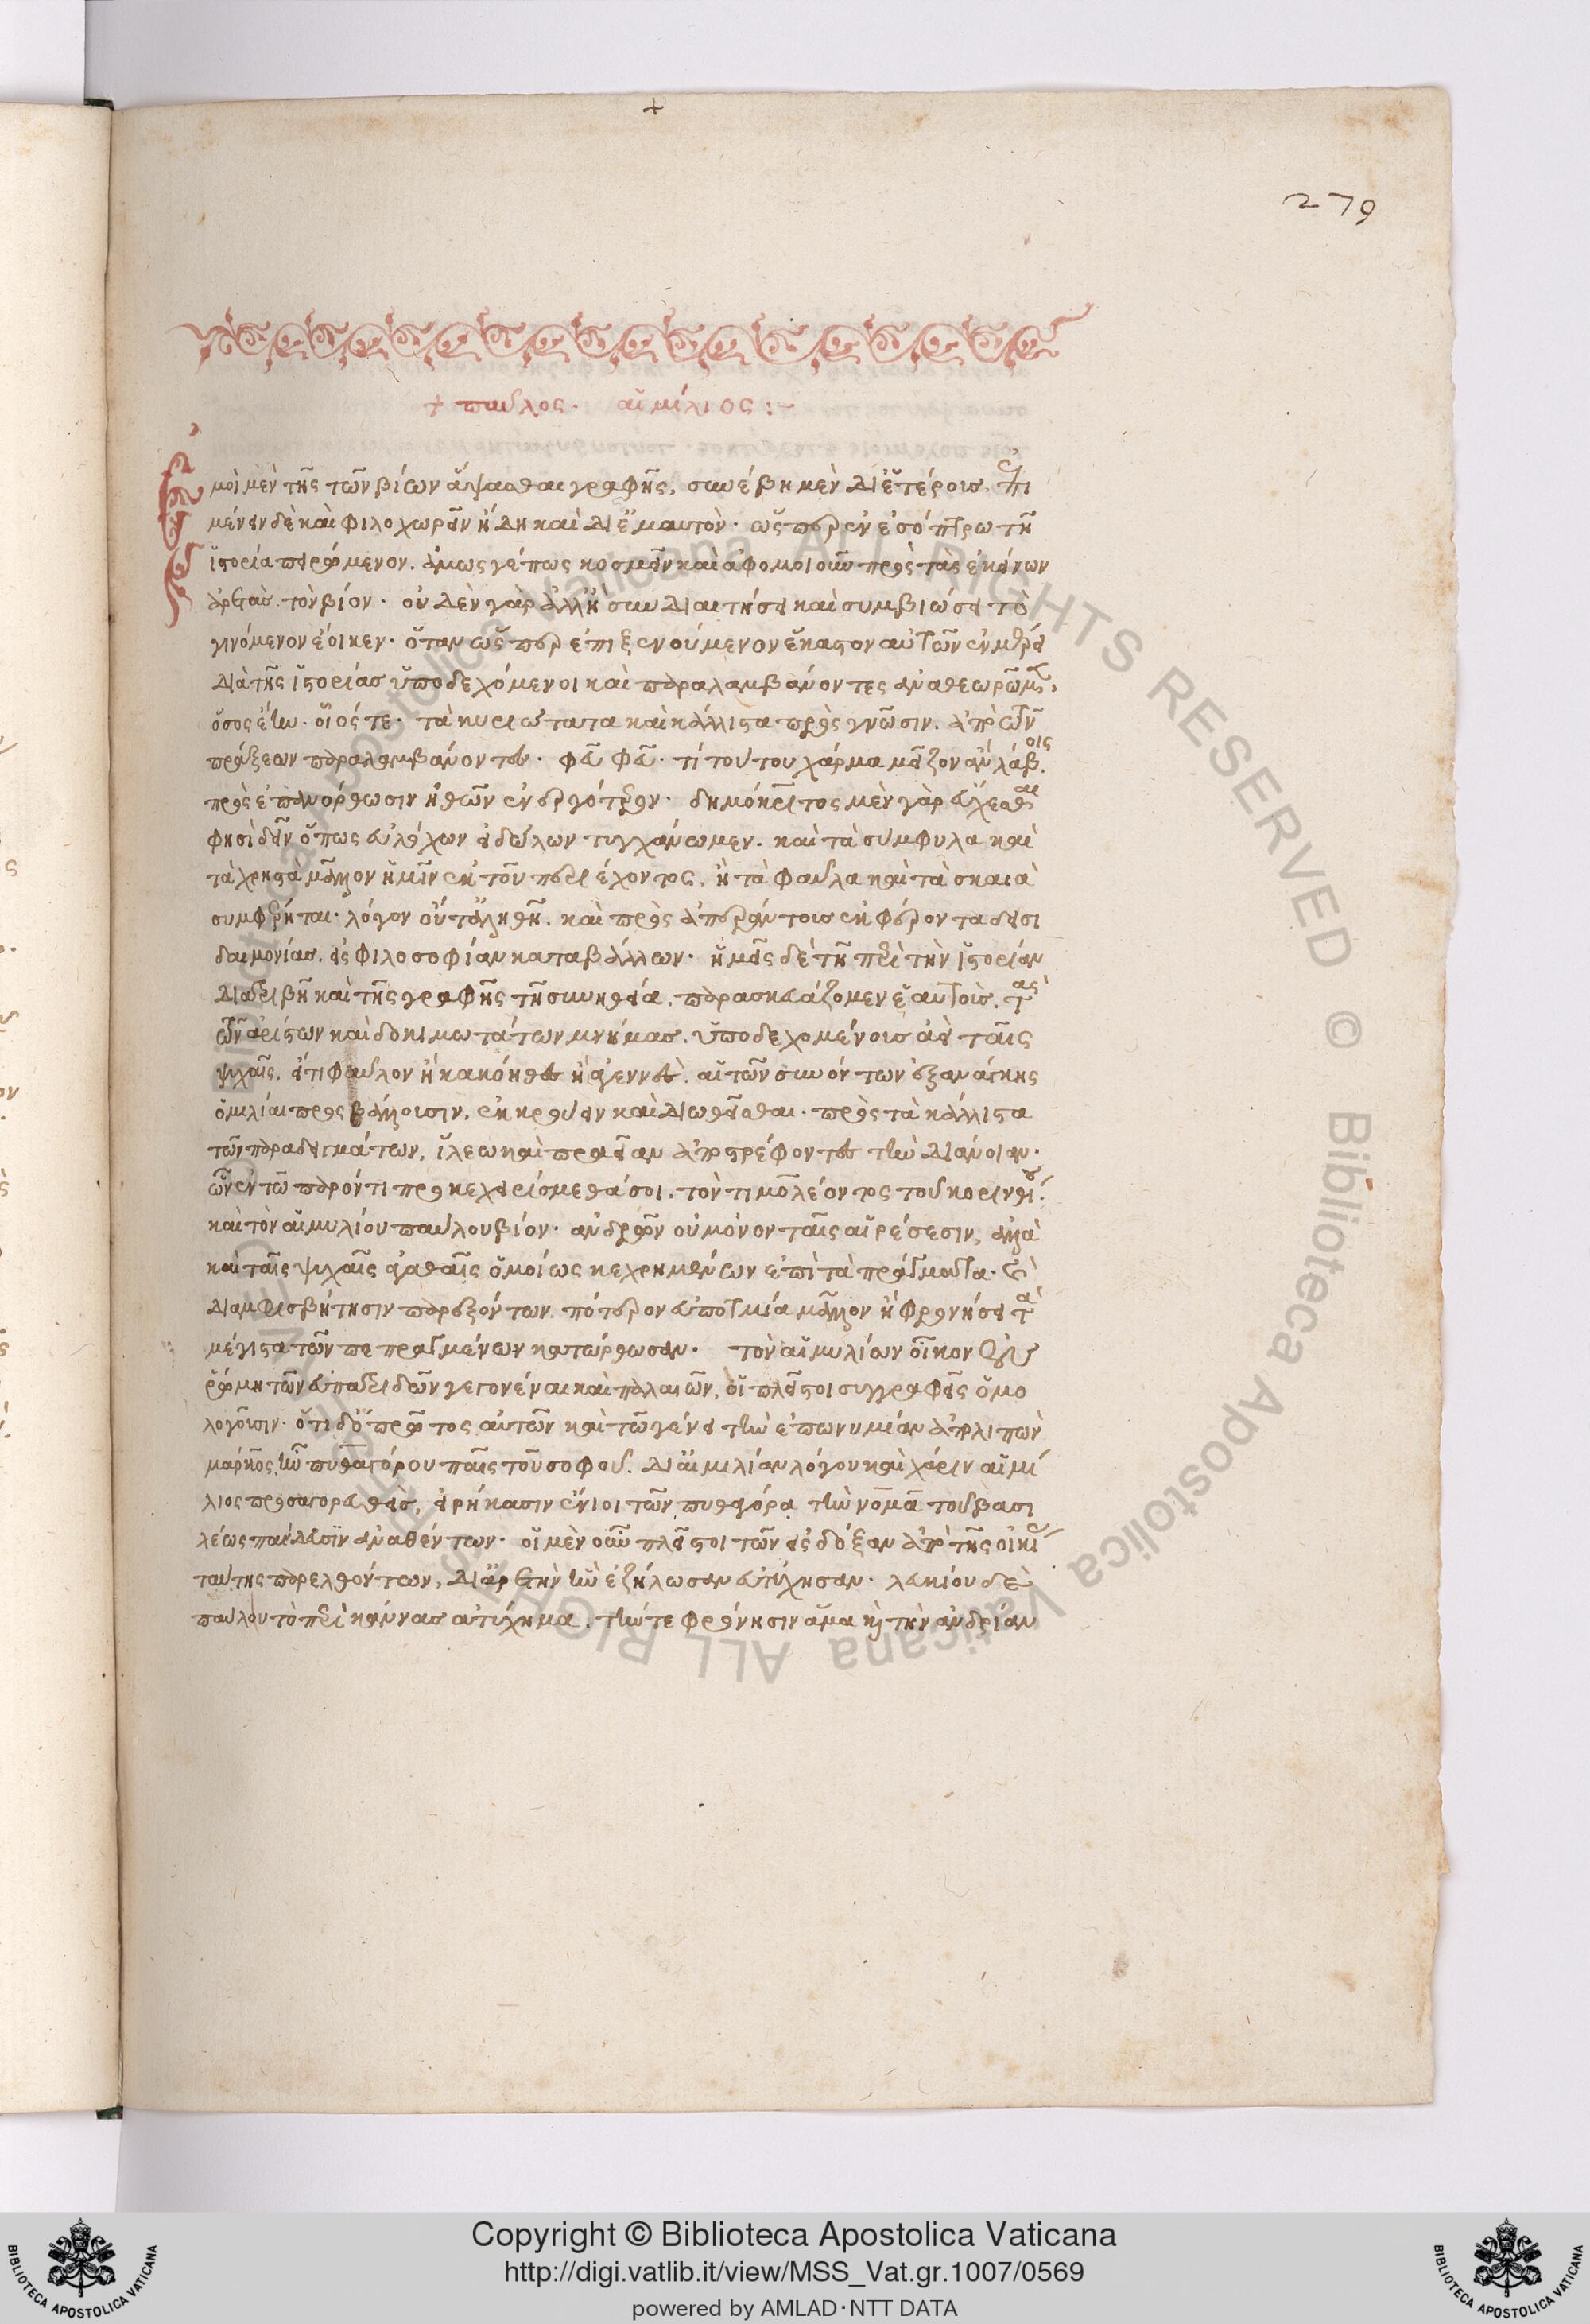 +
279
+ παῦλος· αἰμίλιος:-
Ἐμοὶ μὲν τῆς τῶν βίων ἅψασθαι γραφῆς, συνέβη μὲν δι' ἑτέρους. ἐπι
μένειν δὲ καὶ φιλοχωρεῖν ἤδη καὶ δι' ἐμαυτὸν· ὥσπερ ἐν ἐσόπτρω τῆ
ἱστορία πειρώμενον. ἁμῶς γέ πως κοσμεῖν καὶ ἀφομοιοῦν πρὸς τὰς ἐκείνων
ἀρετὰς τὸν βίον· οὐδὲν γὰρ ἀλλ' ἢ συνδιαιτήσει καὶ συμβιώσει τὸ
γινόμενον ἔοικεν· ὅταν ὥσπερ ἐπιξενούμενον ἕκαστον αὐτῶν ἐν μέρει
διὰ τῆς ἱστορίας ὑποδεχόμενοι καὶ παραλαμβάνοντες ἀναθεωρῶμεν,
ὅσος ἔην· οἷός τε· τὰ κυριώτατα καὶ κάλλιστα πρὸς γνῶσιν. ἀπὸ τῶν
πράξεων παραλαμβάνοντες· φεῦ φεῦ· τί τούτου χάρμα μεῖζον ἂν λάβοις
πρὸς ἐπανόρθωσιν ἠθῶν ἐνεργότερον· δημόκριτος μὲν γὰρ εὔχεσθαι
φησὶ δεῖν ὅπως εὐλόγχων εἰδώλων τυγχάνωμεν. καὶ τὰ σύμφυλα καὶ
τὰ χρηστὰ μᾶλλον ἡμῖν ἐκ τοῦ περιέχοντος, ἢ τὰ φαῦλα καὶ τὰ σκαιὰ
συμφέρηται· λόγον οὔτ' ἀληθῆ. καὶ πρὸς ἀπεράντους ἐκφέροντα δεισι
δαιμονίας. εἰς φιλοσοφίαν καταβάλλων· ἡμεῖς δὲ τῆ περὶ τὴν ἱστορίαν
διατριβῆ καὶ τῆς γραφῆς τῆ συνηθεία. παρασκευάζομεν ἑαυτοὺς. τὰς
τῶν ἀρίστων καὶ δοκιμωτάτων μνήμας. ὑποδεχομένους ἀεὶ ταῖς
ψυχαῖς. εἴ τι φαῦλον ἢ κακόηθες ἢ ἀγεννὲς. αἱ τῶν συνόντων ἐξ ἀνάγκης
ὁμιλίαι προσβάλλουσιν, ἐκκρούειν καὶ διωθεῖσθαι· πρὸς τὰ κάλλιστα
τῶν παραδειγμάτων, ἵλεω καὶ πραεῖαν ἀποστρέφοντες τὴν διάνοιαν·
ὧν ἐν τῶ παρόντι προκεχειρίσμεθά σοι. τὸν τιμολέοντος τοῦ κορινθίου.
καὶ τὸν αἰμυλίου παύλου βίον· ἀνδρῶν οὐ μόνον ταῖς αἱρέσεσιν, ἀλλὰ
καὶ ταῖς ψυχαῖς ἀγαθαῖς ὁμοίως κεχρημένων ἐπὶ τὰ πράγματα· καὶ
διαμφισβήτησιν παρεξόντων πότερον εὐποτμία μᾶλλον ἢ φρονήσει τὰ
μέγιστα τῶν πεπραγμένων κατώρθωσαν. τὸν αἰμυλίων οἶκον ἐν
ῥώμη τῶν εὐπατριδῶν γεγονέναι καὶ παλαιῶν, οἱ πλεῖστοι συγγραφεῖς ὁμο
λογοῦσιν· ὅτι δ' ὁ πρῶτος αὐτῶν καὶ τῶ γένει τὴν ἐπωνυμίαν ἀπολιπὼν
μάρκος ἦν πυθαγόρου παῖς τοῦ σοφοῦ. δι' αἱμυλίαν λόγου καὶ χάριν αἰμί
λιος προσαγορευθεὶς, εἰρήκασιν ἔνιοι τῶν πυθαγόρα τὴν νομᾶ τοῦ βασι
λέως παίδευσιν ἀναθέντων· οἱ μὲν οὖν πλεῖστοι τῶν εἰς δόξαν ἀπὸ τῆς οἰκίας
ταύτης παρελθόντων, δι' ἀρετὴν ἣν ἐζήλωσαν εὐτύχησαν· λευκίου δὲ
παύλου τὸ περὶ κάννας ἀτύχημα. τήν τε φρόνησιν ἅμα καὶ τὴν ἀνδρίαν
Copyright © Biblioteca Apostolica Vaticana
http://digi.vatlib.it/view/MSS_Vat.gr.1007/0569
powered by AMLAD·NTT DATA
BIBLIOTECA APOSTOLICA VATICANA
BIBLIOTECA APOSTOLICA VATICANA
Biblioteca Apostolica Vaticana ALL RIGHTS RESERVED © Biblioteca Apostolica Vaticana ALL RIGHTS RESERVED ©